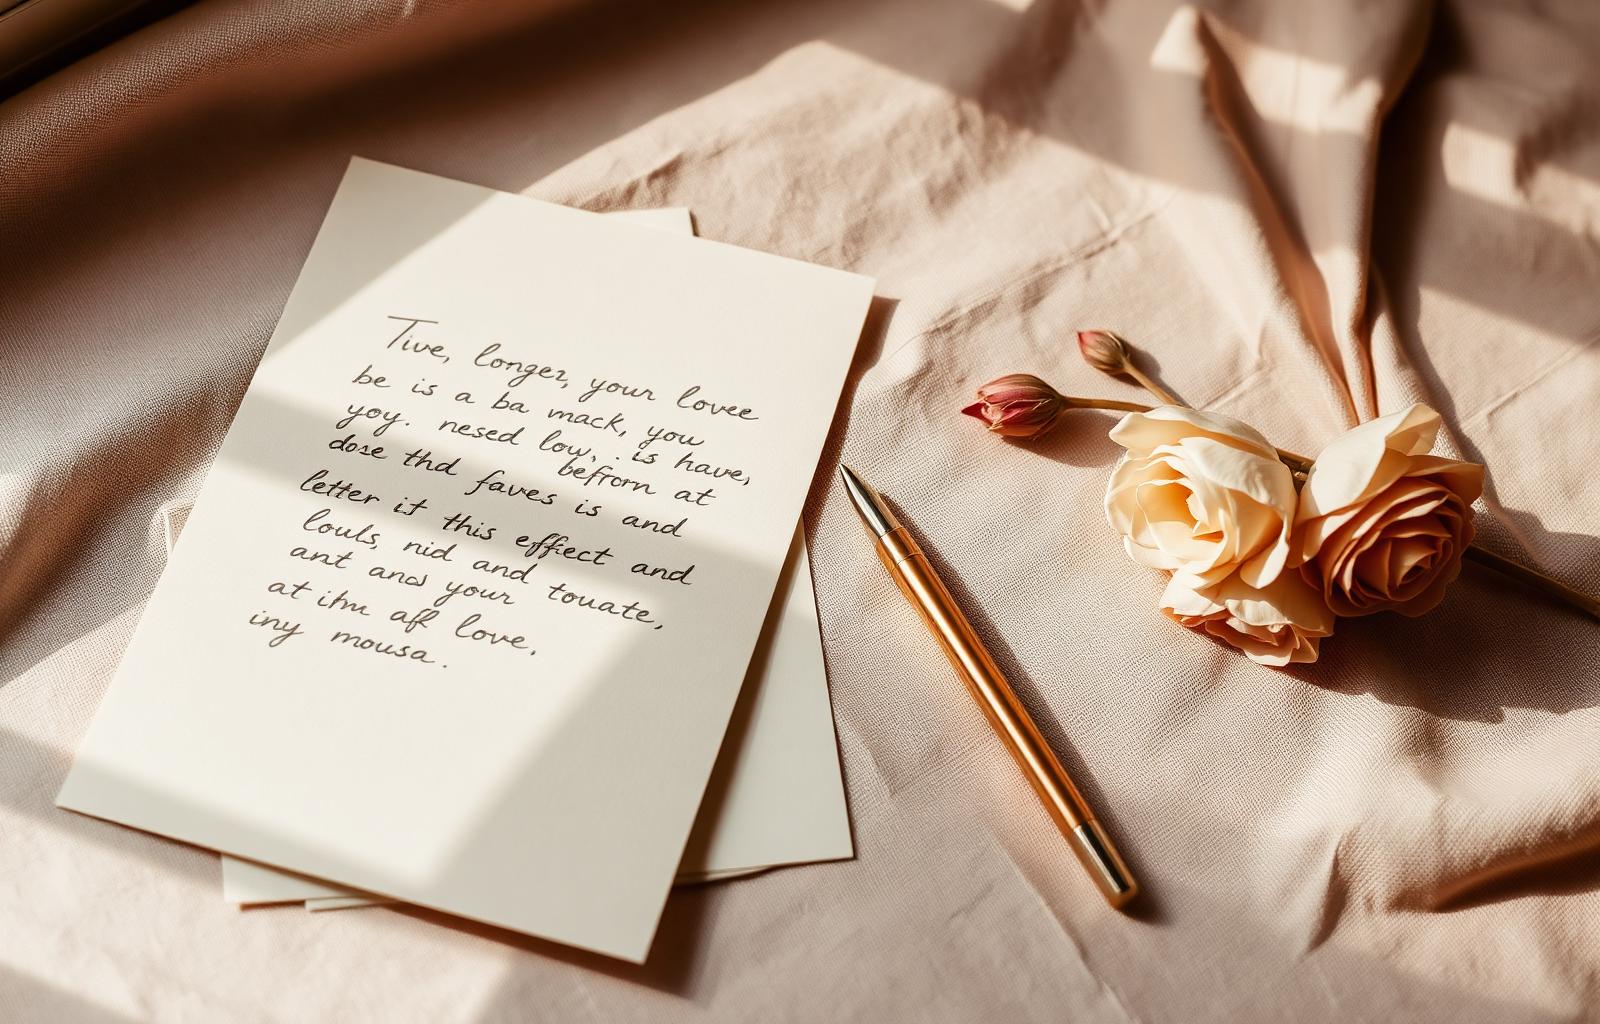 Tive, longer, your lovee
be is a ba mack, you
yoy. nesed low, . is have,
dose thd faves is and
befforn at
letter it this effect and
louls, nid and touate,
ant and your
at ihu aff love,
iny mousa.